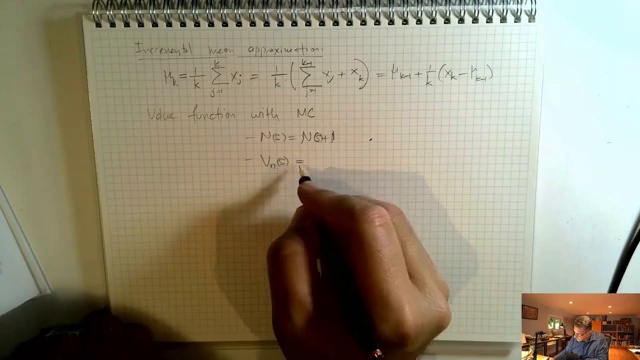 Incremental mean approximation:
μ_k = 1/k Σ_{j=1}^{k} x_j = 1/k ( Σ_{j=1}^{k-1} x_j + x_k ) = μ_{k-1} + 1/k (x_k − μ_{k-1})
Value function with MC
- N(s) = N(s)+1
- V_n(s) =